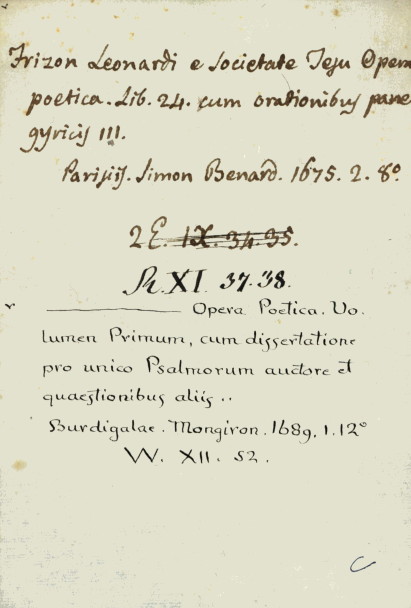 Frizon Leonardi e Societate Jesu Opera
poetica. Lib. 24. cum orationibus pane
gyricis III.
Parisiis. Simon Benard. 1675. 2. 8º
2E. IX. 34. 35.
R. XI. 37. 38.
——— Opera Poetica. Vo.
lumen Primum, cum dissertatione
pro unico Psalmorum auctore et
quaestionibus aliis..
Burdigalae. Mongiron. 1689. 1. 12º
W. XII. 52.
C